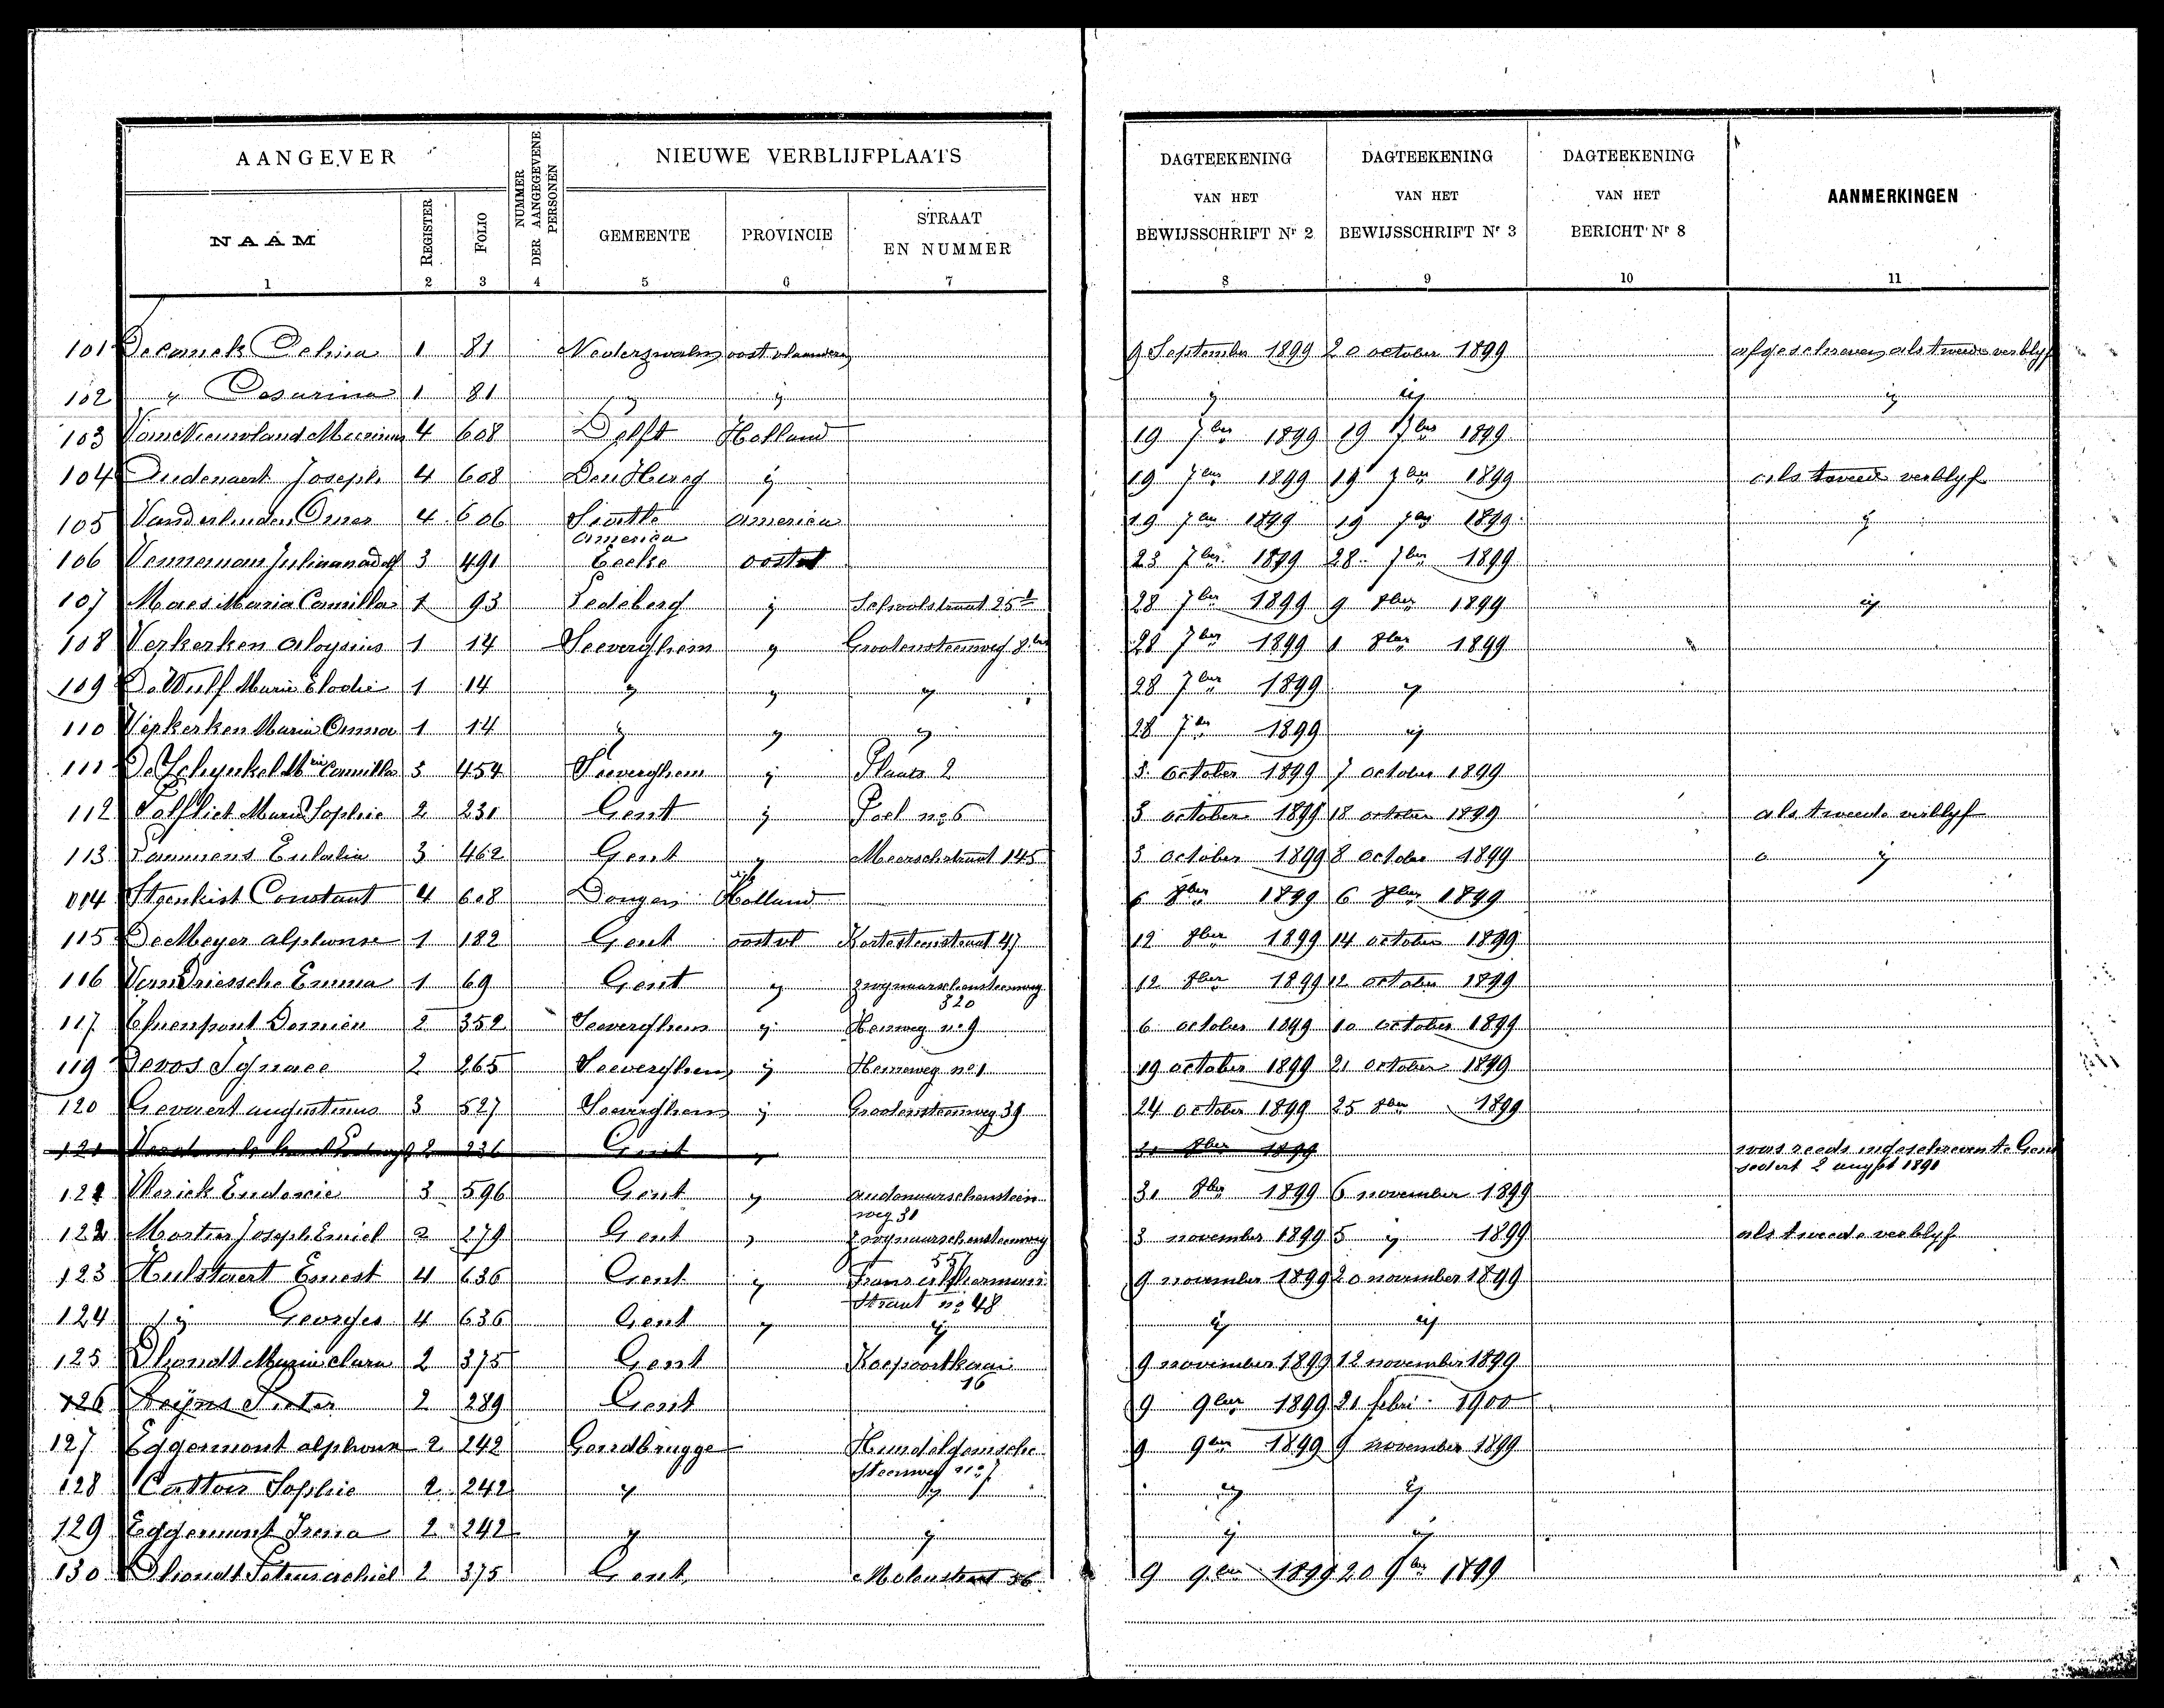 AANGEVER
NUMMER DER AANGEGEVENE PERSONEN
NIEUWE VERBLIJFPLAATS
DAGTEEKENING VAN HET BEWIJSSCHRIFT Nr 2
DAGTEEKENING VAN HET BEWIJSSCHRIFT Nr 3
DAGTEEKENING VAN HET BERICHT Nr 8
AANMERKINGEN
NAAM REGISTER FOLIO GEMEENTE PROVINCIE STRAAT EN NUMMER
1 2 3 4 5 6 7 8 9 10 11
101 1 81 Nederzwalm oost vlaanderen 9 September 1899 20 october 1899 afgeschreven als tweede verblyf
102 " 1 81 " " " " "
103 4 608 Delft Holland 19 7ber 1899 19 7ber 1899
104 Oudenaert Joseph 4 608 Den Haag " 19 7ber 1899 19 7ber 1899 als tweede verblyf
105 Vanderlinden Omer 4 606 Seattle America america 19 7ber 1899 19 7ber 1899 "
106 3 491 Eecke oostvl 23 7ber 1899 28 7ber 1899
107 Maes Maria Camilla 1 93 Ledeberg " Schoolstraat 25 28 7ber 1899 9 8ber 1899 "
108 Verkerken Aloysius 1 14 Seeverghem " Grootensteenweg 28 7ber 1899 1 8ber 1899
109 De Wulf Marie Elodie 1 14 " " " 28 7ber 1899 "
110 Verkerken Maria Emma 1 14 " " " 28 7ber 1899 "
111 De Schynkel Mie Camilla 3 454 Seeverghem " Plaats 2 3 october 1899 7 october 1899
112 Marie Sophie 2 231 Gent " Poel no 6 3 october 1899 18 october 1899 als tweede verblyf
113 Eulalia 3 462 Gent " Meerschstraat 145 3 october 1899 8 october 1899 "
114 Constant 4 608 Dongen Holland 6 8ber 1899 6 8ber 1899
115 De Meyer alphonse 1 182 Gent oostvl 47 12 8ber 1899 14 october 1899
116 Van Driessche Emma 1 69 Gent " Zwynaarschensteenweg 320 12 8ber 1899 12 october 1899
117 2 352 Seeverghem " no 9 6 october 1899 10 october 1899
119 Devos Ignace 2 265 Seeverghem " no 1 19 october 1899 21 october 1899
120 Gevaert augustinus 3 527 Seeverghem " Grootensteenweg 39 24 october 1899 25 8ber 1899
121 2 236 Gent " 31 8ber 1899 was reeds ingeschreven te Gent
sedert 2 augst 1891
121 3 596 Gent " audenaarschensteen
weg 31 31 8ber 1899 6 november 1899
122 Mortier Joseph Emiel 2 279 Gent " Zwynaarschensteenweg
557 3 november 1899 5 " 1899 als tweede verblyf
123 Hulstaert Ernest 4 636 Gent "
Straat no 48 9 november 1899 20 november 1899
124 " Georges 4 636 Gent " " " "
125 Dhondt Marie clara 2 375 Gent Koepoortkaai
16 9 november 1899 12 november 1899
126 2 289 Gent 9 9ber 1899 21 febri. 1900
127 Eggermont alphonse 2 242 Gendbrugge Hundelgemsche
steenweg no 7 9 9ber 1899 9 november 1899
128 Sophie 2 242 " " " "
129 Eggermont Irena 2 242 " " " "
130 Dhondt Petrus achiel 2 375 Gent Molenstraat 56 9 9ber 1899 20 9ber 1899